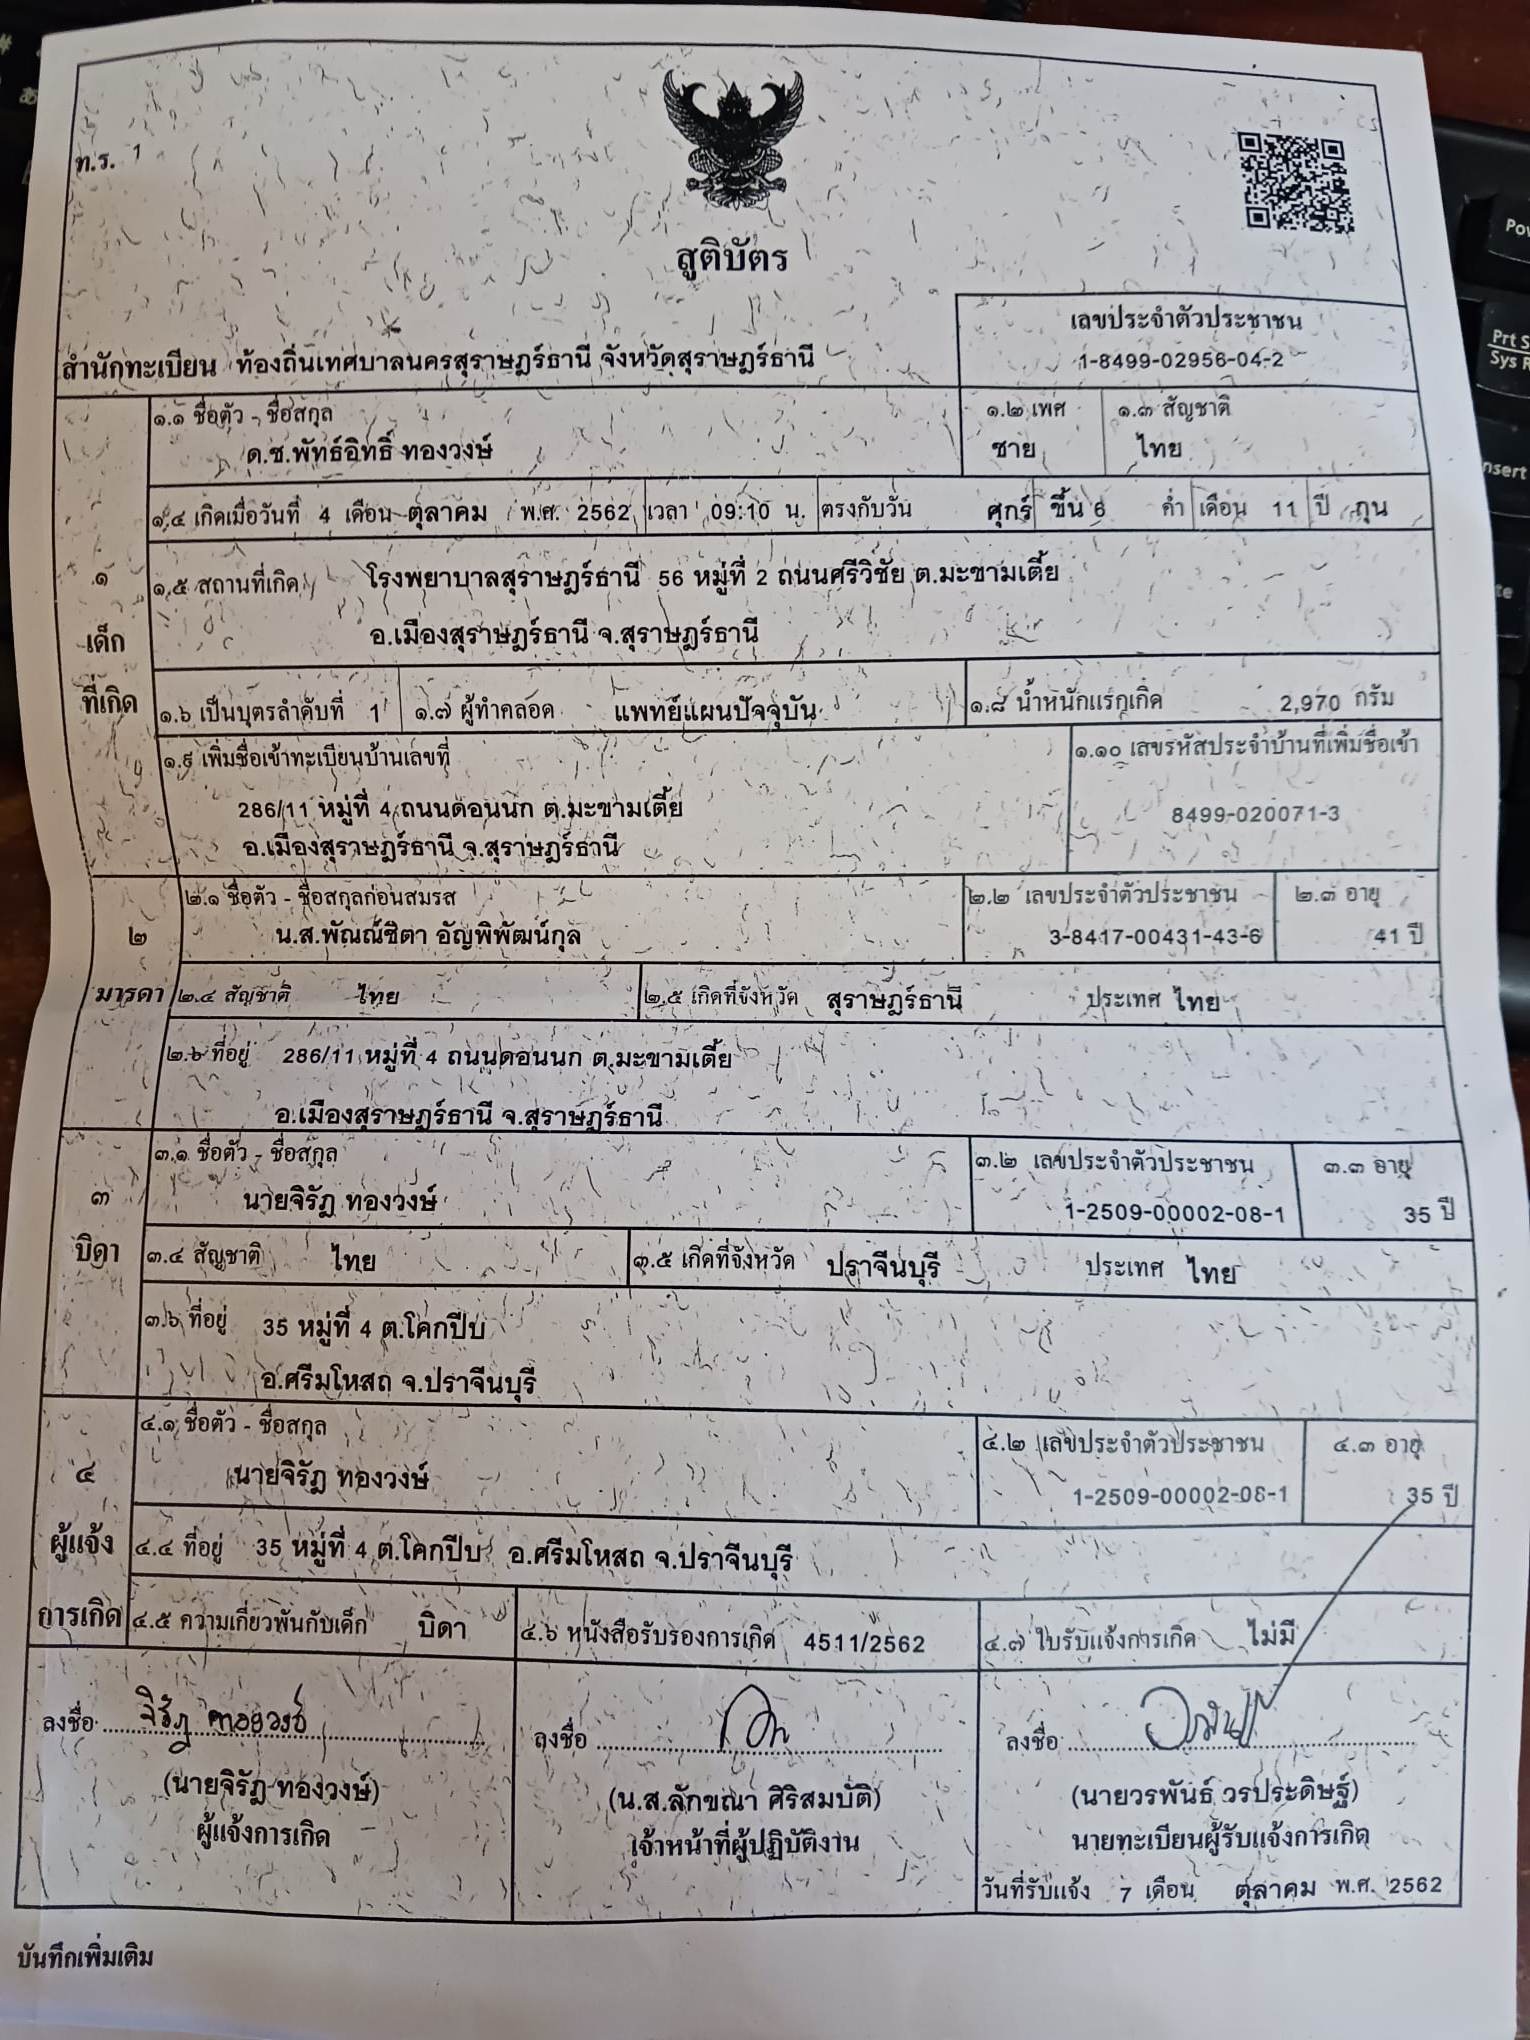 ท.ร. 1
สูติบัตร
เลขประจำตัวประชาชน
สำนักทะเบียน ท้องถิ่นเทศบาลนครสุราษฎร์ธานี จังหวัดสุราษฎร์ธานี
1-8499-02956-04-2
๑.๑ ชื่อตัว - ชื่อสกุล ๑.๒ เพศ ๑.๓ สัญชาติ
ด.ช.พัทธ์อิทธิ์ ทองวงษ์ ชาย ไทย
๑.๔ เกิดเมื่อวันที่ 4 เดือน ตุลาคม พ.ศ. 2562 เวลา 09:10 น. ตรงกับวัน ศุกร์ ขึ้น 6 ค่ำ เดือน 11 ปี กุน
๑
เด็ก
ที่เกิด
๑.๕ สถานที่เกิด โรงพยาบาลสุราษฎร์ธานี 56 หมู่ที่ 2 ถนนศรีวิชัย ต.มะขามเตี้ย
อ.เมืองสุราษฎร์ธานี จ.สุราษฎร์ธานี
๑.๖ เป็นบุตรลำดับที่ 1 ๑.๗ ผู้ทำคลอด แพทย์แผนปัจจุบัน ๑.๘ น้ำหนักแรกเกิด 2,970 กรัม
๑.๙ เพิ่มชื่อเข้าทะเบียนบ้านเลขที่ ๑.๑๐ เลขรหัสประจำบ้านที่เพิ่มชื่อเข้า
286/11 หมู่ที่ 4 ถนนดอนนก ต.มะขามเตี้ย 8499-020071-3
อ.เมืองสุราษฎร์ธานี จ.สุราษฎร์ธานี
๒
มารดา
๒.๑ ชื่อตัว - ชื่อสกุลก่อนสมรส ๒.๒ เลขประจำตัวประชาชน ๒.๓ อายุ
น.ส.พัณณ์ชิตา อัญพิพัฒน์กุล 3-8417-00431-43-6 41 ปี
๒.๔ สัญชาติ ไทย ๒.๕ เกิดที่จังหวัด สุราษฎร์ธานี ประเทศ ไทย
๒.๖ ที่อยู่ 286/11 หมู่ที่ 4 ถนนดอนนก ต.มะขามเตี้ย
อ.เมืองสุราษฎร์ธานี จ.สุราษฎร์ธานี
๓
บิดา
๓.๑ ชื่อตัว - ชื่อสกุล ๓.๒ เลขประจำตัวประชาชน ๓.๓ อายุ
นายจิรัฎ ทองวงษ์ 1-2509-00002-08-1 35 ปี
๓.๔ สัญชาติ ไทย ๓.๕ เกิดที่จังหวัด ปราจีนบุรี ประเทศ ไทย
๓.๖ ที่อยู่ 35 หมู่ที่ 4 ต.โคกปีบ
อ.ศรีมโหสถ จ.ปราจีนบุรี
๔
ผู้แจ้ง
การเกิด
๔.๑ ชื่อตัว - ชื่อสกุล ๔.๒ เลขประจำตัวประชาชน ๔.๓ อายุ
นายจิรัฎ ทองวงษ์ 1-2509-00002-08-1 35 ปี
๔.๔ ที่อยู่ 35 หมู่ที่ 4 ต.โคกปีบ อ.ศรีมโหสถ จ.ปราจีนบุรี
๔.๕ ความเกี่ยวพันกับเด็ก บิดา ๔.๖ หนังสือรับรองการเกิด 4511/2562 ๔.๗ ใบรับแจ้งการเกิด ไม่มี
ลงชื่อ จิรัฎ ทองวงษ์ ลงชื่อ ลงชื่อ
(นายจิรัฎ ทองวงษ์) (น.ส.ลักขณา ศิริสมบัติ) (นายวรพันธ์ วรประดิษฐ์)
ผู้แจ้งการเกิด เจ้าหน้าที่ผู้ปฏิบัติงาน นายทะเบียนผู้รับแจ้งการเกิด
วันที่รับแจ้ง 7 เดือน ตุลาคม พ.ศ. 2562
บันทึกเพิ่มเติม